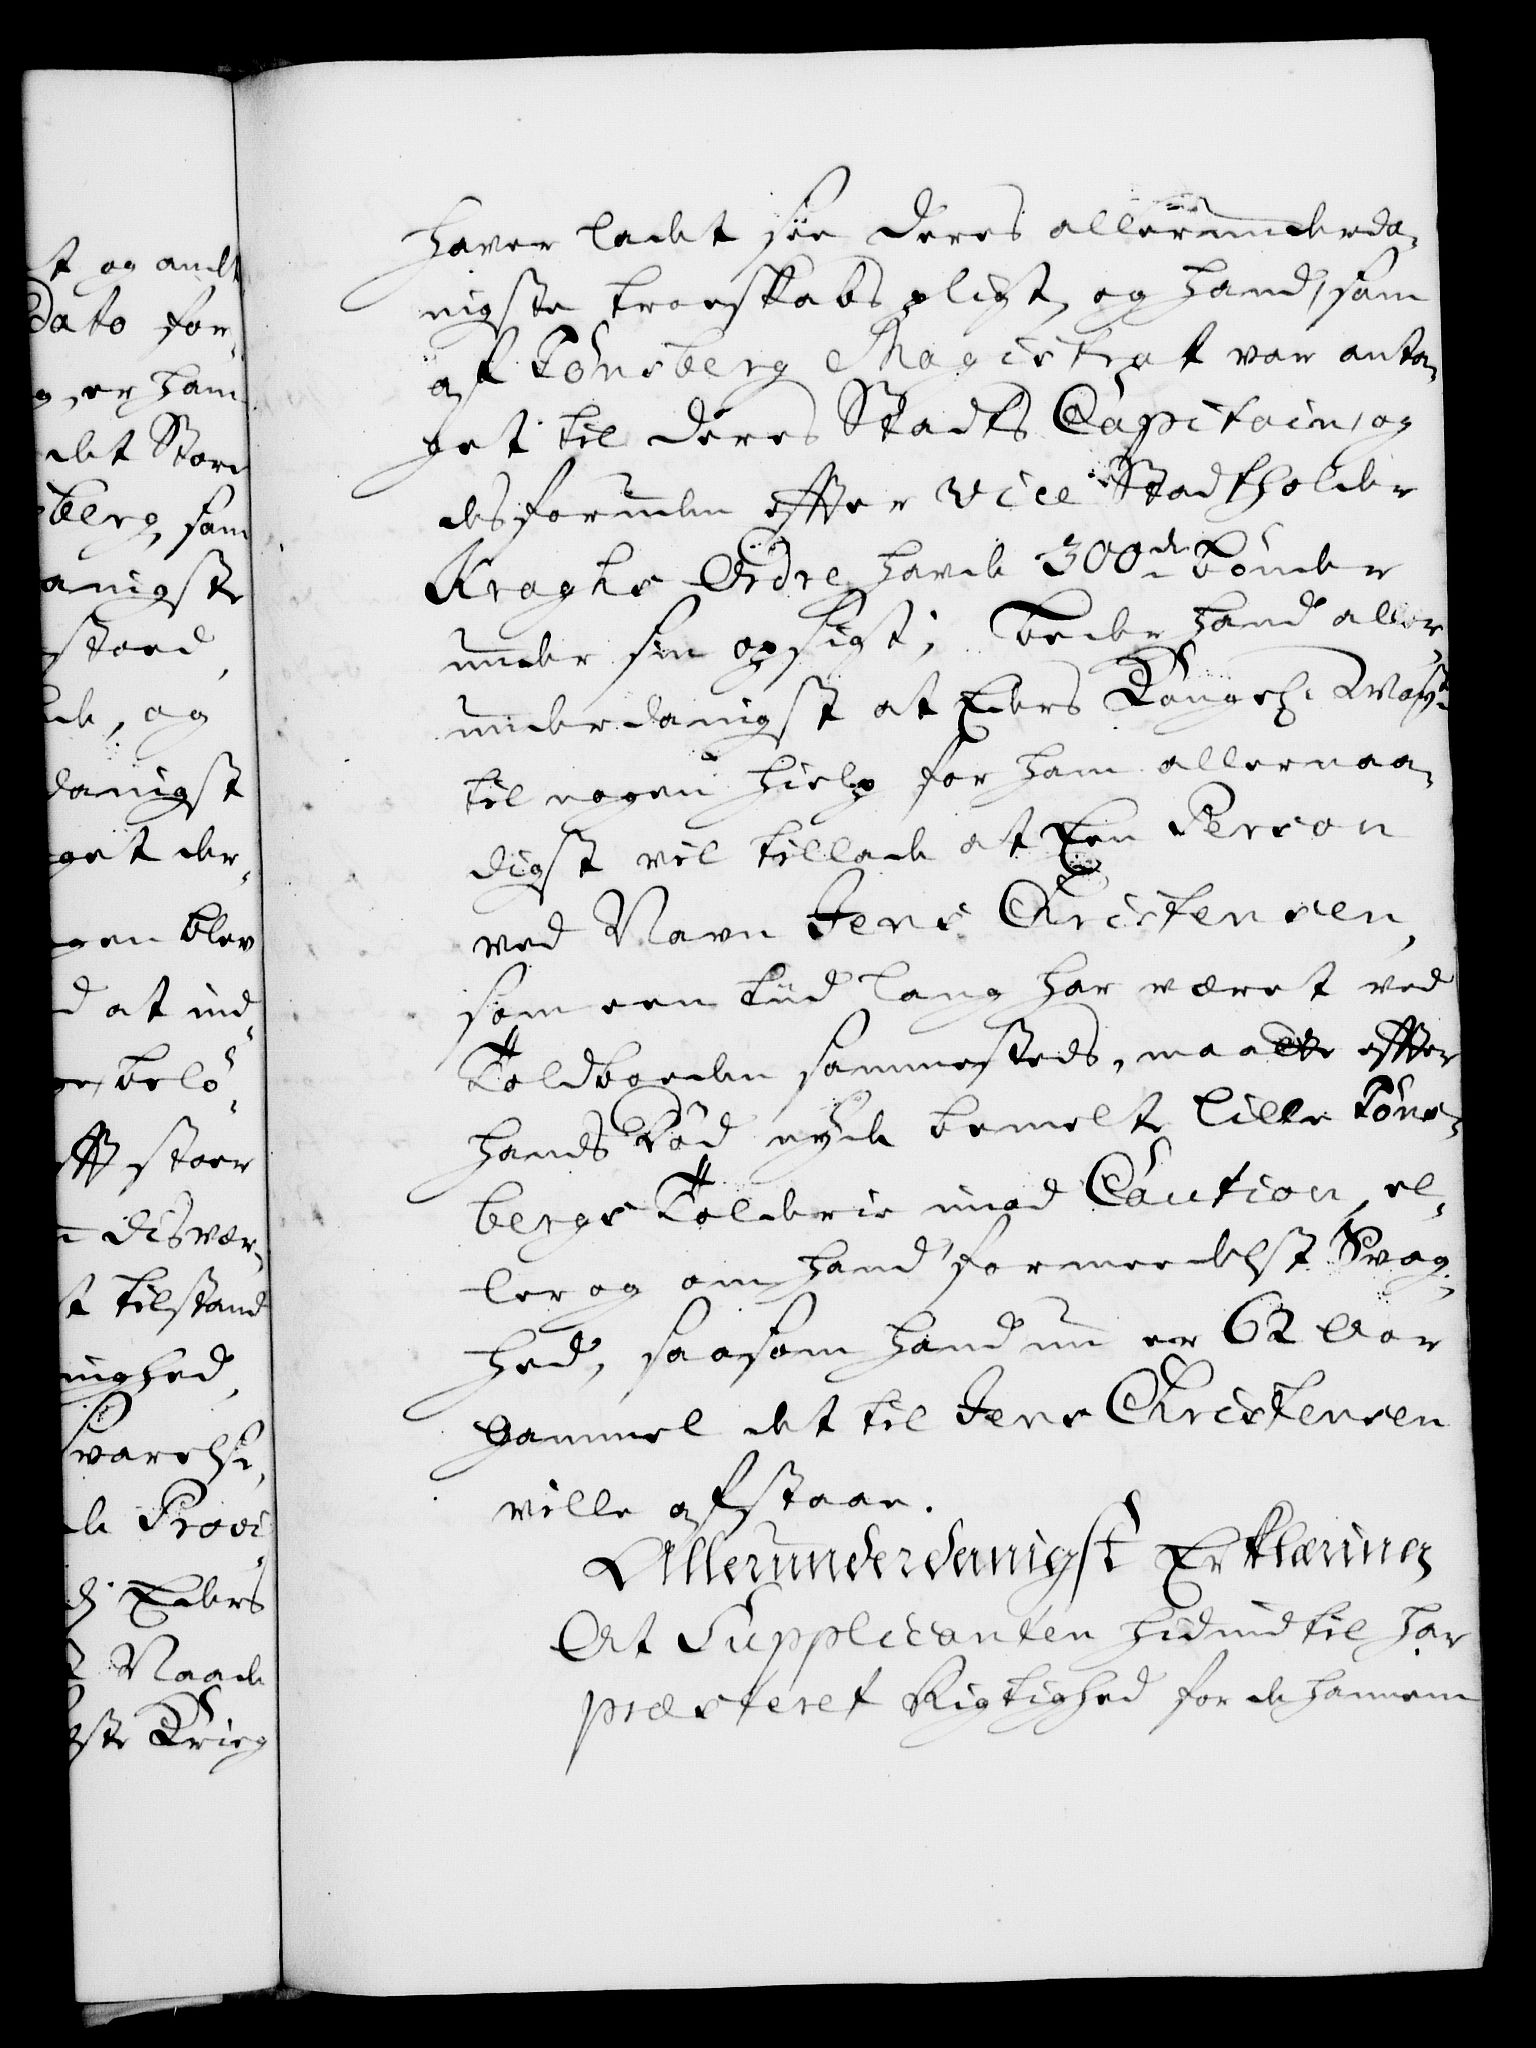 st og andt
Dato for-
g, er ham
det Store
sberg, som
anigste
stoed,
de, og
danigst
get der-
gen blev
d at ind-
belö-
ff stoer
disvær-
st tilstand
nighed,
svarelse,
de Provi-
Eders
Naade
ste Krieg
haver ladet see deres allerunderda-
nigste troeskabs pligt, og hand, som
af Tönsberg Magistrat var anta-
get til deres Stadts Capitain, og
desforuden effter Vice Stadtholder
Kraghs Ordre havde 300de Bönder
under sin opsigt; Beder hand aller-
underdanigst at Eders Kongel: Mayst
til nogen hielp for ham allernaa-
digst vil tillade at Een Person
ved Navn Jens Christensen,
som een tiid lang har været ved
Toldboeden sammesteds, maatte effter
hands Död nyde bemelte lille Töns-
bergs Tolderie imod Caution, el-
ler og om hand formedelst Svag-
hed, saasom hand nu er 62 Aar
gammel det til Jens Christensen
ville afstaae.
Allerunderdanigst Erklæring
At Supplicanten hidindtil har
præsteret Rigtighed for de hannem